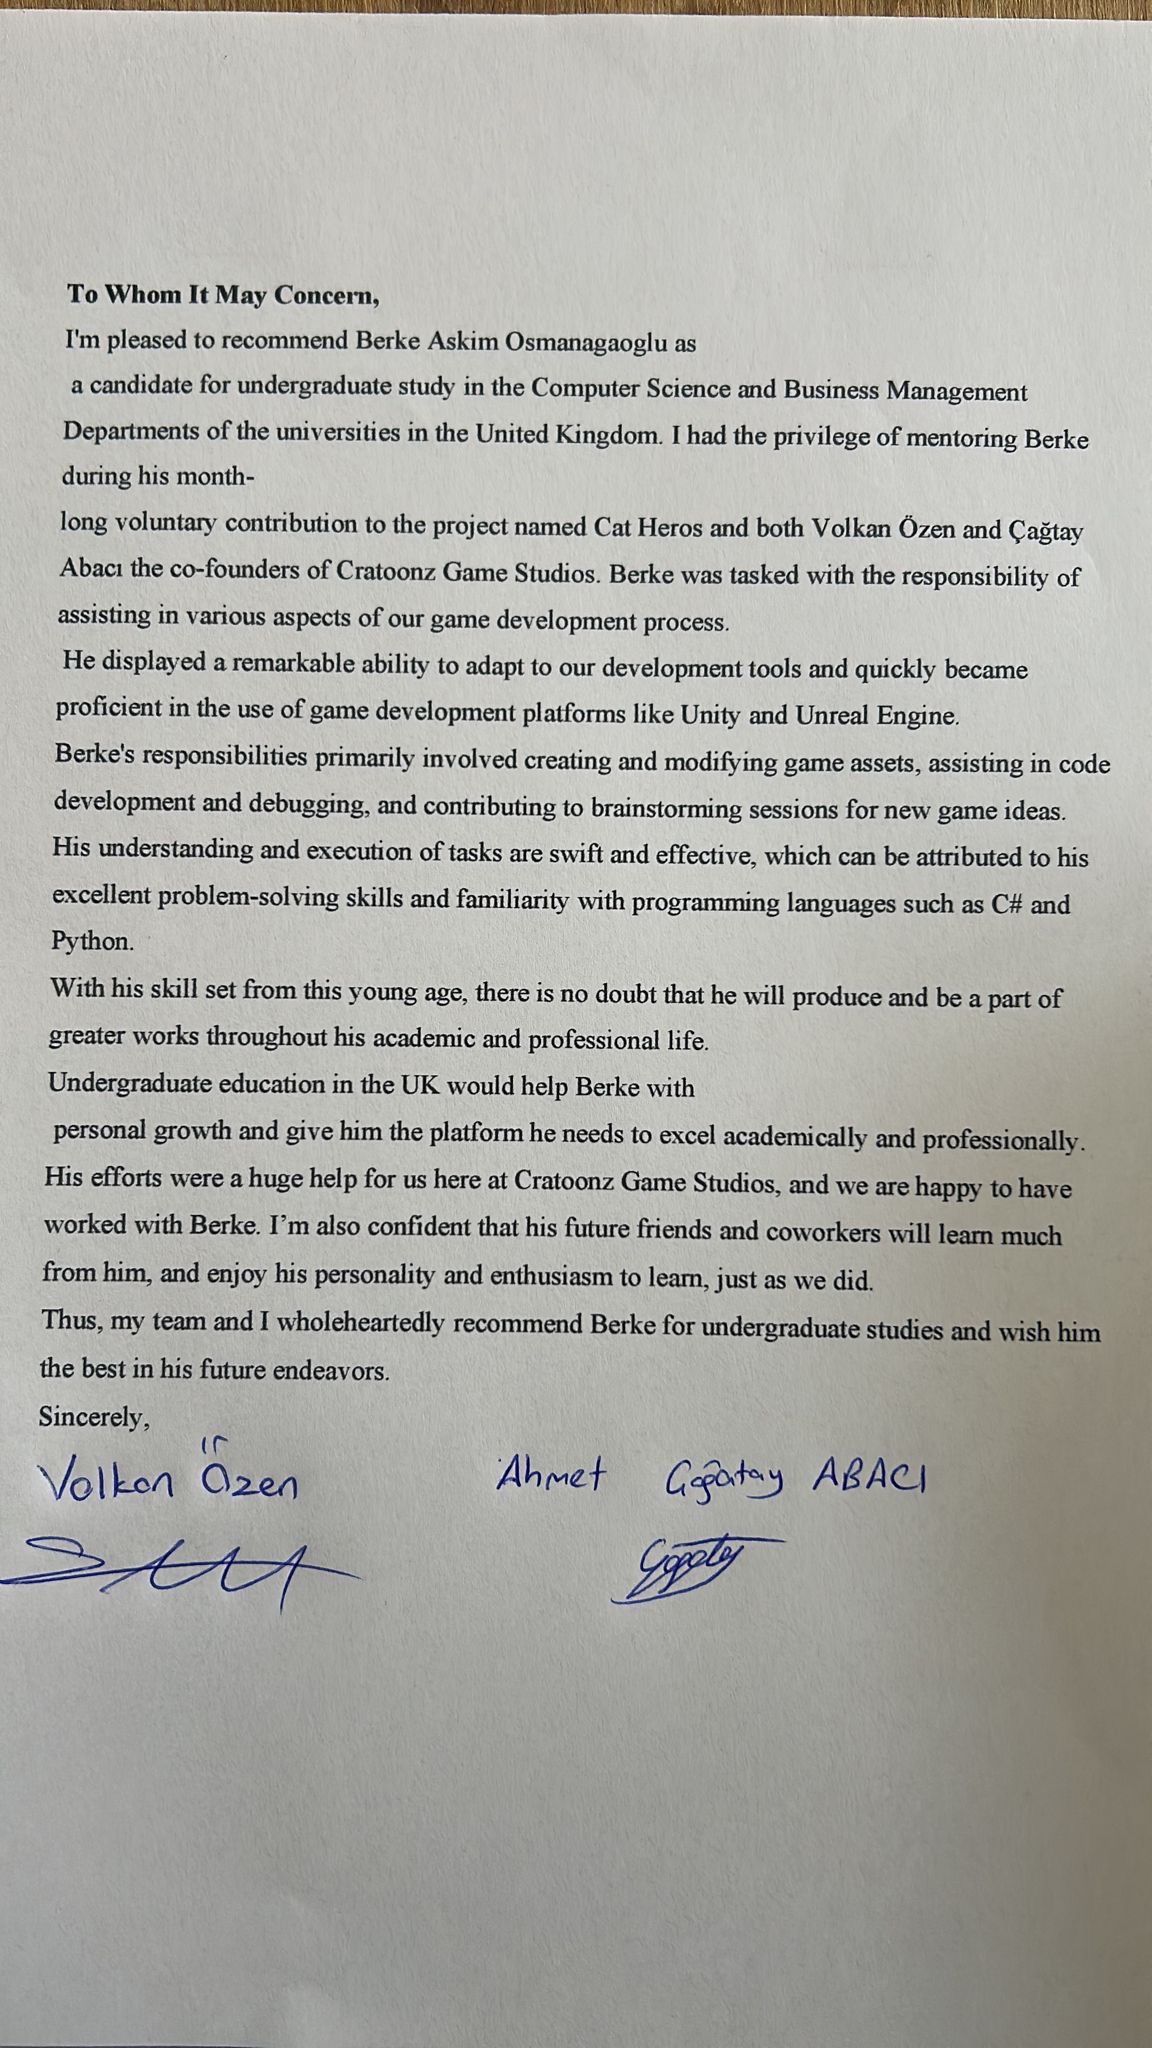 To Whom It May Concern,
I'm pleased to recommend Berke Askim Osmanagaoglu as
a candidate for undergraduate study in the Computer Science and Business Management
Departments of the universities in the United Kingdom. I had the privilege of mentoring Berke
during his month-
long voluntary contribution to the project named Cat Heros and both Volkan Özen and Çağtay
Abacı the co-founders of Cratoonz Game Studios. Berke was tasked with the responsibility of
assisting in various aspects of our game development process.
He displayed a remarkable ability to adapt to our development tools and quickly became
proficient in the use of game development platforms like Unity and Unreal Engine.
Berke's responsibilities primarily involved creating and modifying game assets, assisting in code
development and debugging, and contributing to brainstorming sessions for new game ideas.
His understanding and execution of tasks are swift and effective, which can be attributed to his
excellent problem-solving skills and familiarity with programming languages such as C# and
Python.
With his skill set from this young age, there is no doubt that he will produce and be a part of
greater works throughout his academic and professional life.
Undergraduate education in the UK would help Berke with
personal growth and give him the platform he needs to excel academically and professionally.
His efforts were a huge help for us here at Cratoonz Game Studios, and we are happy to have
worked with Berke. I’m also confident that his future friends and coworkers will learn much
from him, and enjoy his personality and enthusiasm to learn, just as we did.
Thus, my team and I wholeheartedly recommend Berke for undergraduate studies and wish him
the best in his future endeavors.
Sincerely,
Volkan Özen Ahmet ABACI